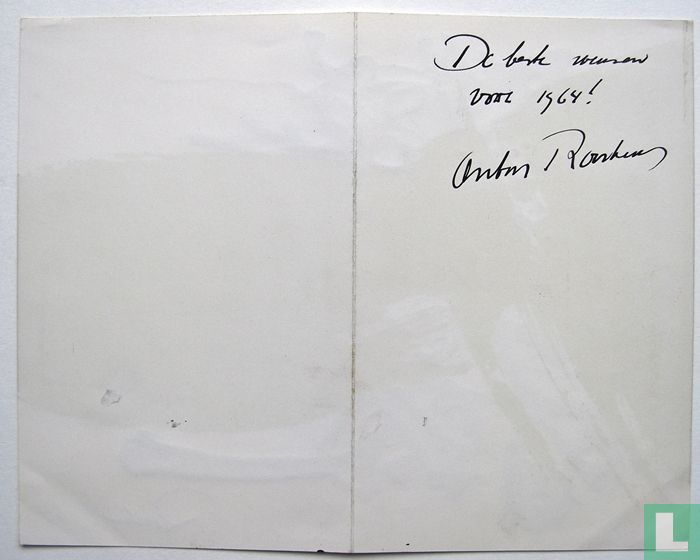 De beste wensen
voor 1964!
Anton Rooskens
L